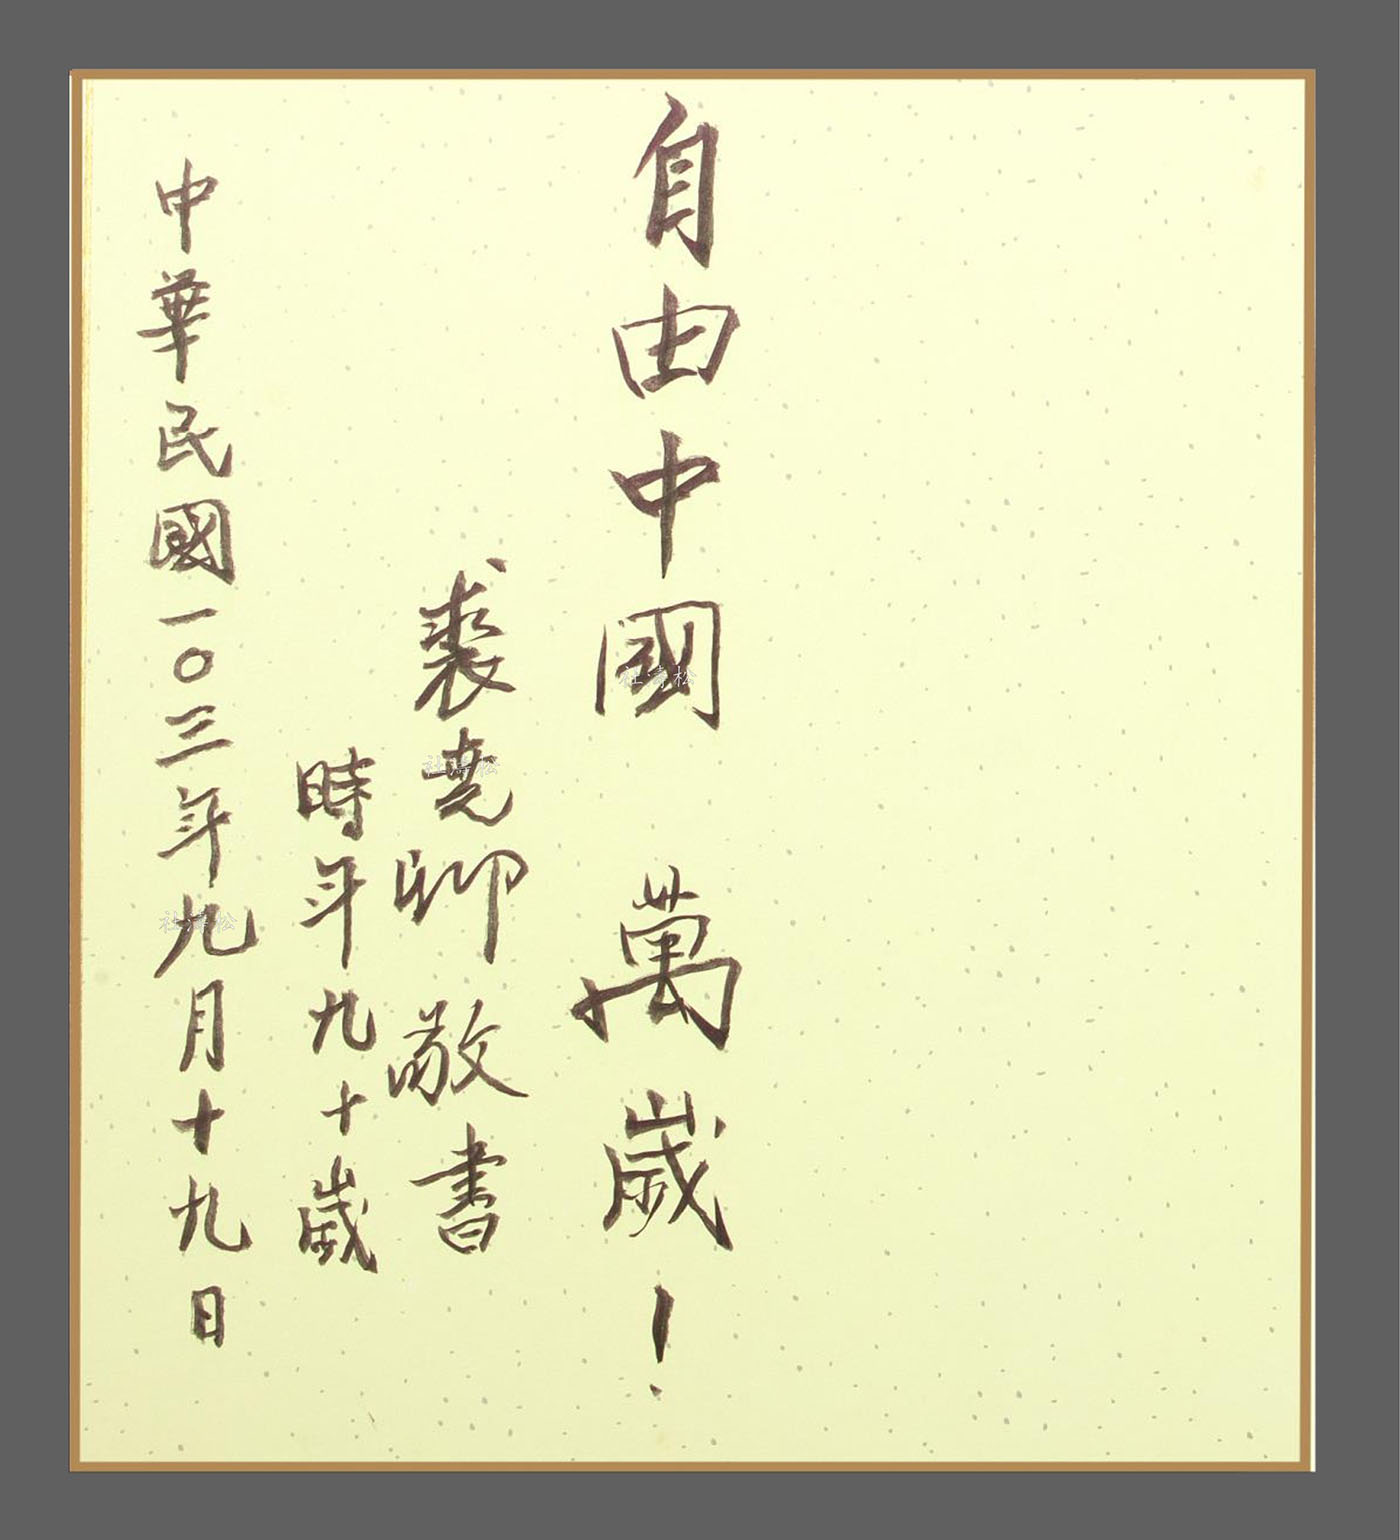 自由中國 萬歲！
裘尭卿敬書
時年九十歲
中華民國一〇三年九月十九日
杜濤松
杜濤松
杜濤松